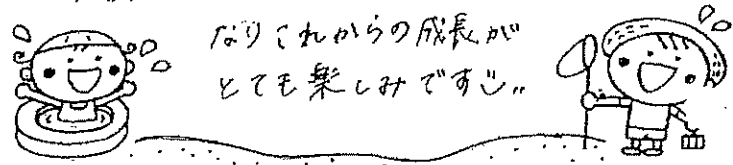 なりこれからの成長が
とても楽しみです